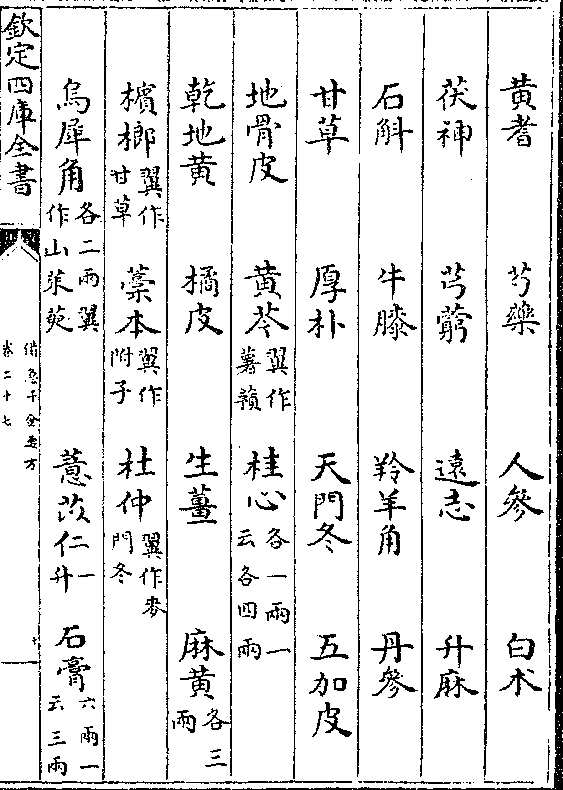 黄耆 芍藥 人參 白朮
茯神 芎藭 遠志 升麻
石斛 牛膝 羚羊角 丹參
甘草 厚朴 天門冬 五加皮
地骨皮 黄芩翼作薯蕷 桂心各一兩一云各四兩
乾地黄 橘皮 生薑 麻黄各三兩
檳榔翼作甘草 藁本翼作附子 杜仲翼作麥門冬
烏犀角各二兩翼作山茱萸 薏苡仁一升 石膏六兩一云三兩
欽定四庫全書
備急千金要方
卷二十七